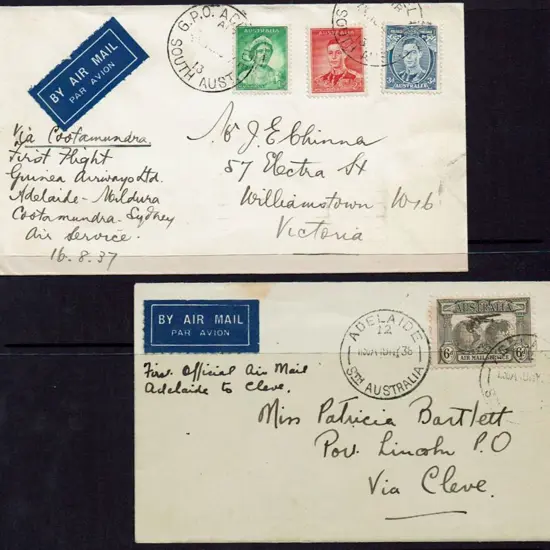 SOUTH G.P.O. A
13
AUST
AUSTRALIA
AUSTRALIA
AUSTRALIA
BY AIR MAIL
PAR AVION
Via Cootamundra
First Flight
Guinea Airways Ltd.
Adelaide-Mildura
Cootamundra-Sydney
Air Service.
16.8.37
Mr J. E. Chinna
57 Electra St
Williamstown W16
Victoria
BY AIR MAIL
PAR AVION
ADELAIDE
12
36
STH AUSTRALIA
AUSTRALIA
6D
AIR MAIL SERVICE
6D
First Official Air Mail
Adelaide to Cleve.
Miss Patricia Bartlett
Port Lincoln P.O
Via Cleve.